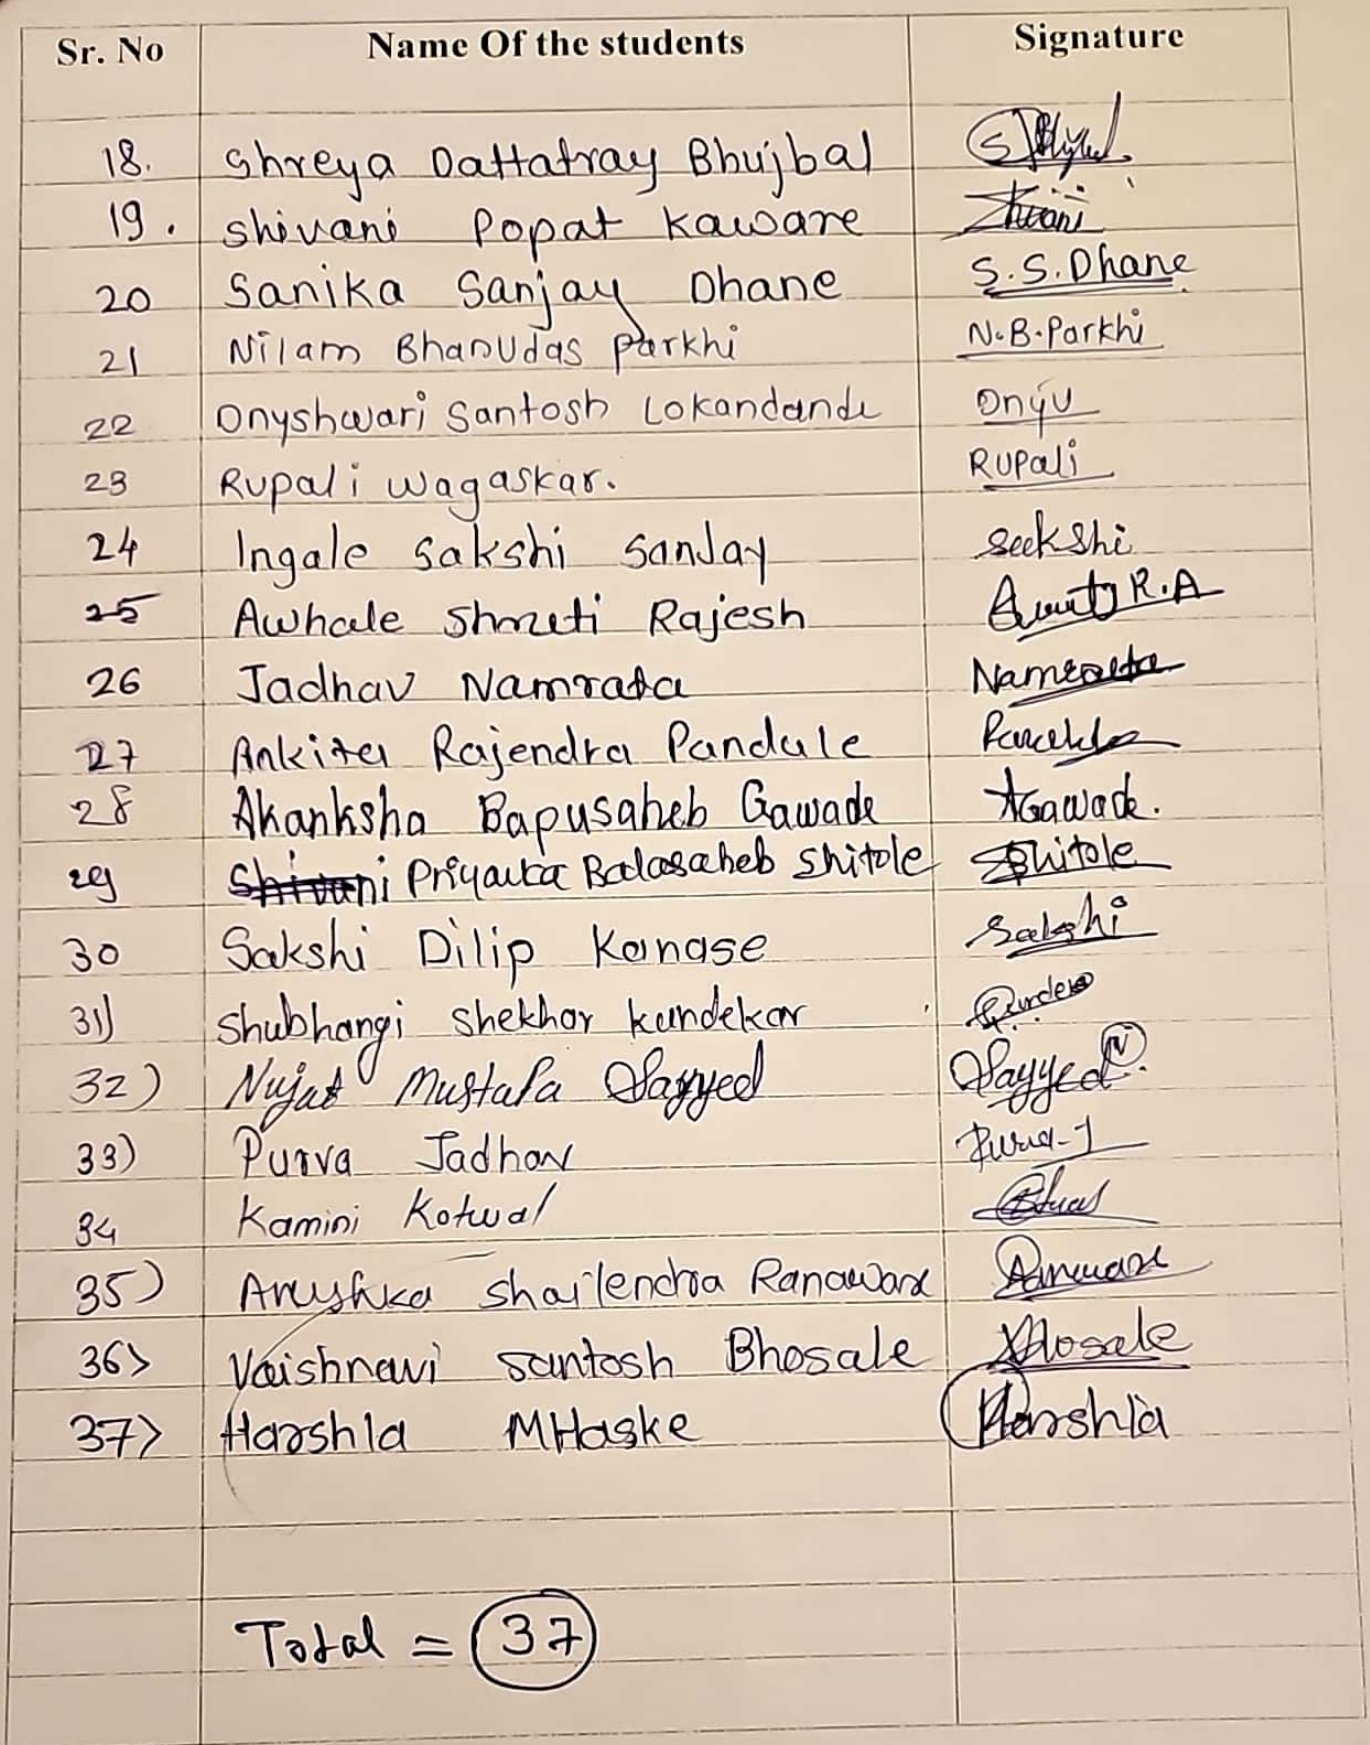 Sr. No Name Of the students Signature
18. Shreya Dattatray Bhujbal
19. Shivani Popat Kaware Shivani
20 Sanika Sanjay Dhane S.S.Dhane
21 Nilam Bhanudas Parkhi N.B.Parkhi
22 Dnyshwari Santosh Lokandande Dnyu
23 Rupali Wagaskar. Rupali
24 Ingale Sakshi SanJay
25 Awhale Shruti Rajesh R.A
26 Jadhav Namrata Namrata
27 Ankita Rajendra Pandule
28 Akanksha Bapusaheb Gawade AGawade.
29 Shivani Priyanka Balasaheb Shitole Shitole
30 Sakshi Dilip Kanase Sakshi
31) Shubhangi Shekhar kundekar
32) Mustafa Sayyed Sayyed N
33) Purva Jadhav Purva-J
34 Kamini Kotwal
35) Anushka Shailendra Ranaware
36> Vaishnavi Santosh Bhosale Bhosale
37> Harshla MHaske Harshla
Total = 37